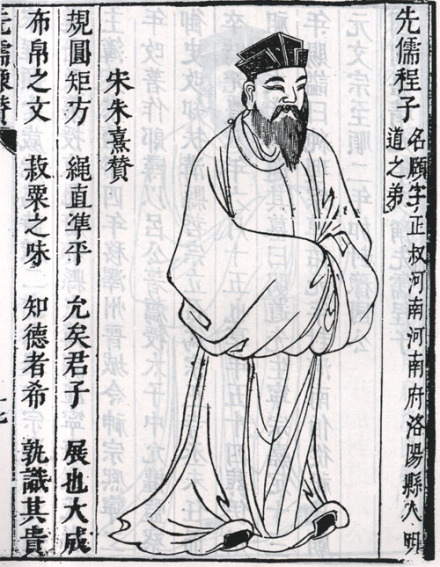 先儒程子 名頤字正叔河南河南府洛陽縣人明
道之弟
宋朱熹贊
規圓矩方 繩直準平 允矣君子 展也大成
布帛之文 菽粟之味 知德者希 孰識其貴
先儒像贊